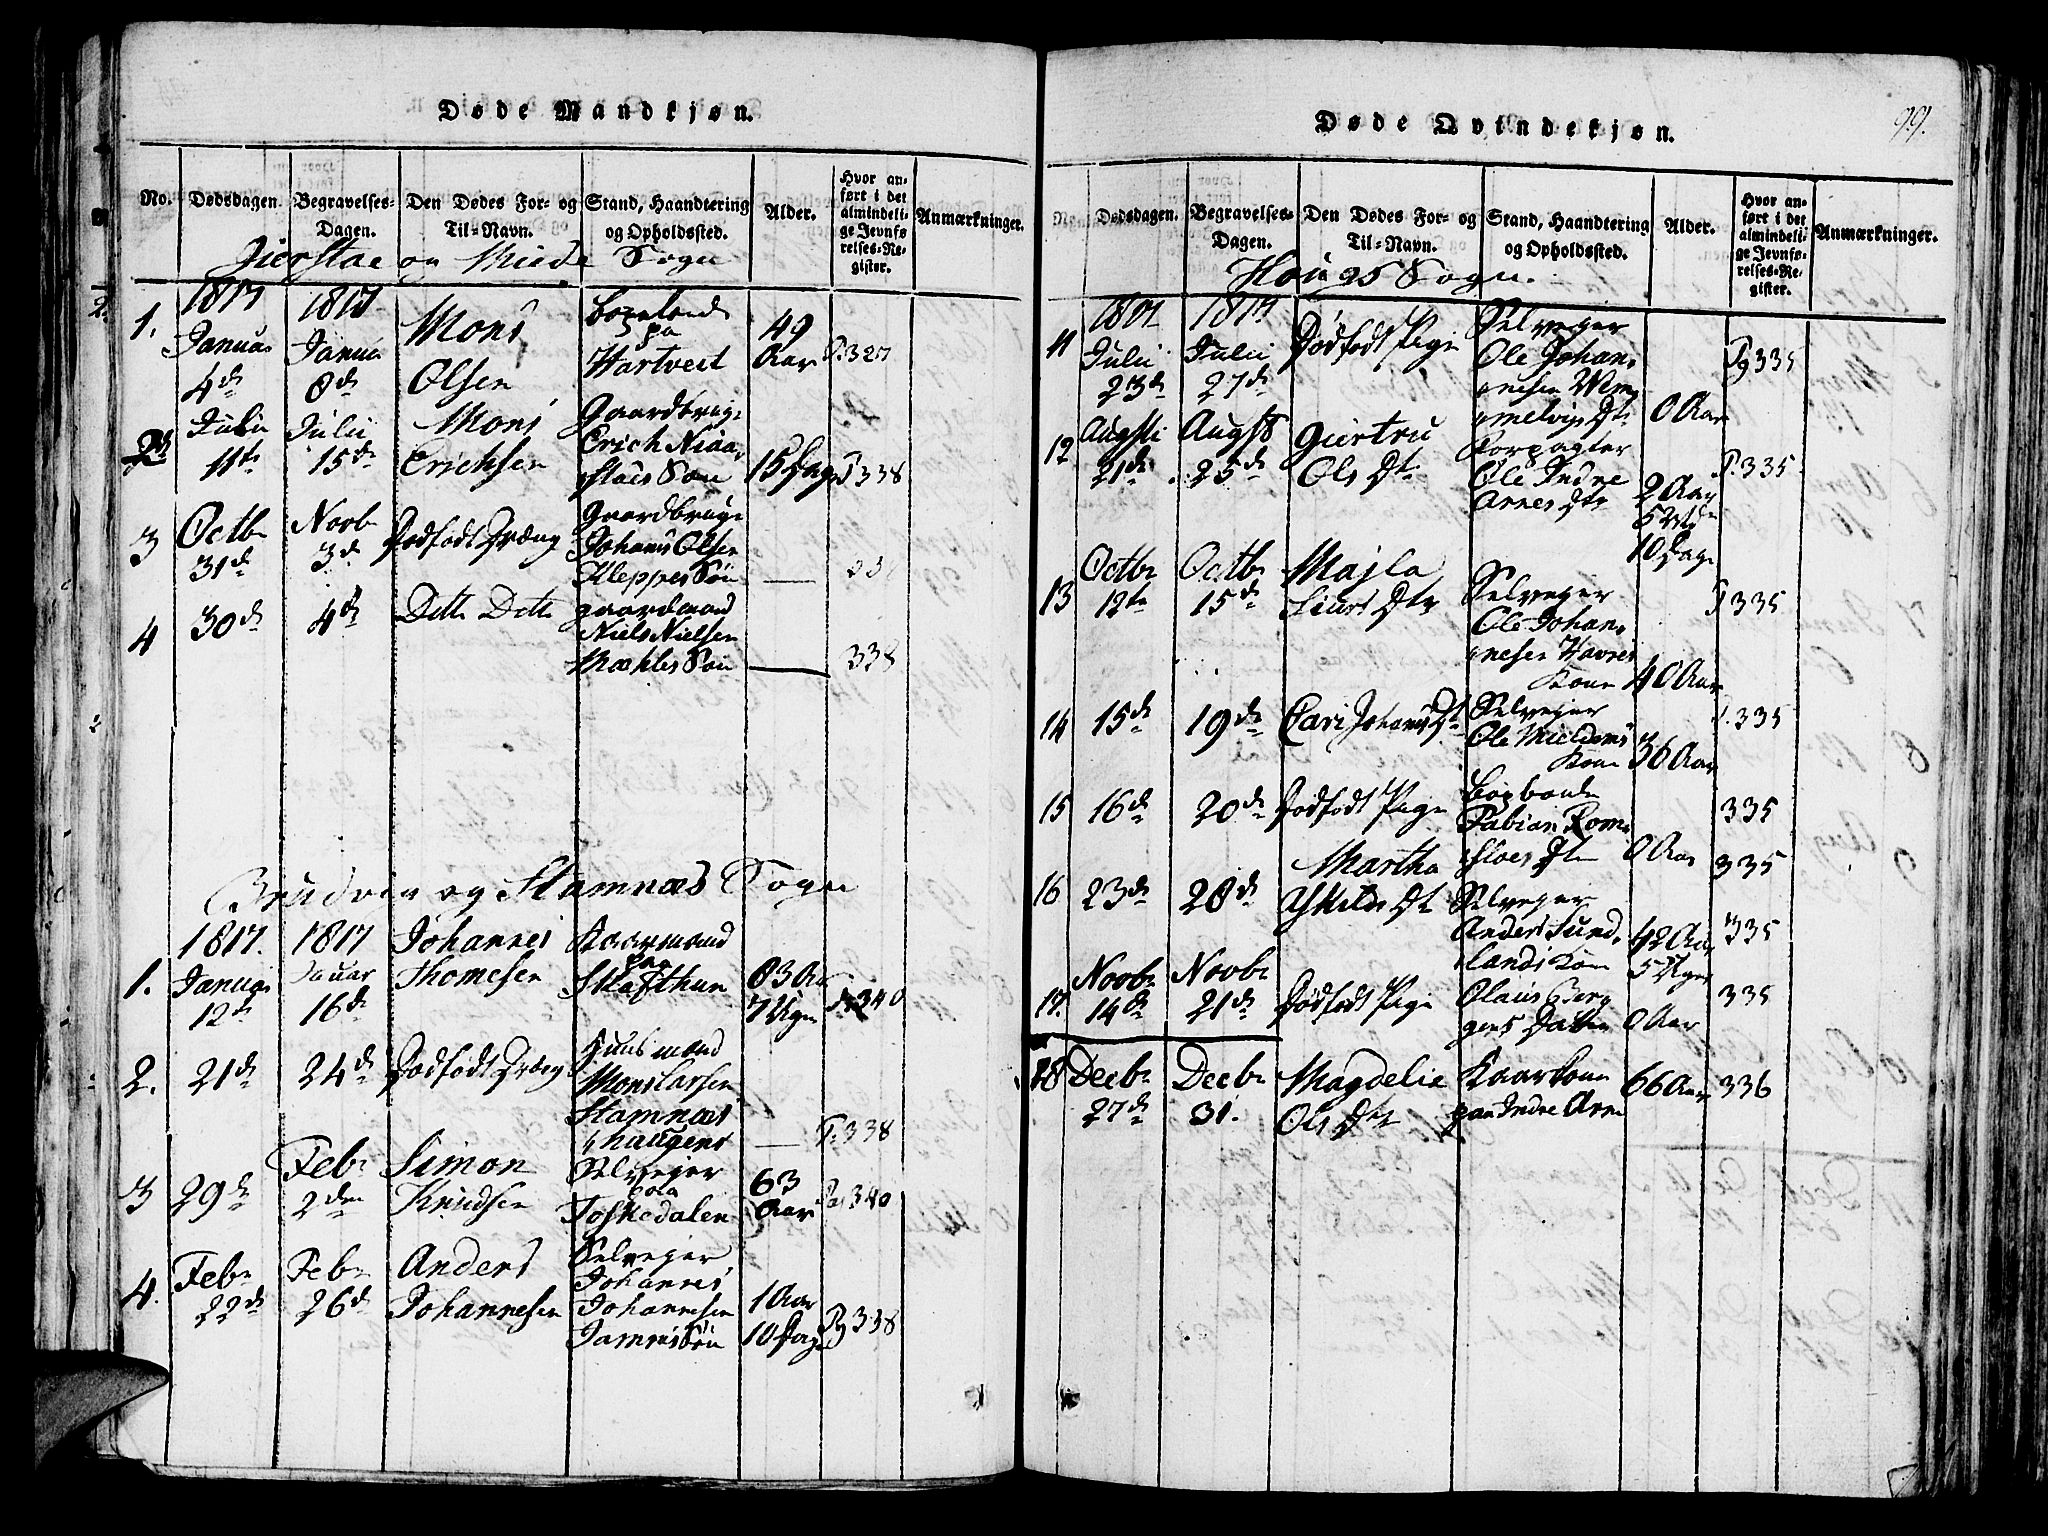 Døde Mandkjøn.
No.
Dødsdagen.
Begravelses-
Dagen.
Den Dødes For- og
Til-Navn.
Stand, Haandtering
og Opholdssted.
Alder.
Hvor an-
ført i det
almindeli-
ge Jevnfø-
relses-Re-
gister.
Anmærkninger.
og Miede Sogn
1.
1817
Januar
4de
1817
Janua
8de
Mons
Olsen
paa
Hartveit
49
Aar
P. 327
Julii
11te
Julii
15de
Mons
Erichsen
Gaardbruge
Erich
Søn
15 Dage
P. 338
3
Octbr
31de
Novbr
3de
Dødfødt Dræng
Gaardbruge
Johans Olsen
Kleppes Søn
4
30de
4de
Dette Dette
gaardmand
Niels Nielsen
Mæhles Søn
338
Brudvig og Stamnæs Sogn
1.
1817.
Januar
12te
1817
Januar
16de
Johannes
Thomesen
Kaarmand
paa
Skafthun
83 Aar
7 Uger
340
2.
21de
24de
Dødfødt Dræng
Huusmand
Mons Larsen
Stamnæs
haugens
P. 338
3
29de
Febr
2den
Simon
Knudsen
Selvejer
paa
Toskedalen
63
Aar
Pag 340
4.
Febr
22de
Febr
26de
Anders
Johannesen
Selvejer
Johannes
Johannesen
Søn
1 Aar
10 Dage
Pg 338
Døde Qvindekjøn.
99.
Dødsdagen.
Begravelses-
Dagen.
Den Dødes For- og
Til-Navn.
Stand, Haandtering
og Opholdssted.
Alder.
Hvor an-
ført i det
almindeli-
ge Jevnfø-
relses-Re-
gister.
Anmærkninger.
Sogn.
11
Julii
23de
1817
Julii
27de
Dødfødt Pige
Selvejer
Ole Johan-
nesen
Dtr
0 Aar
Pg 335
12
Augsti
21de
Augst
25de
Giertru
Ols Dtr
Forpagter
Ole Indre
Arnes Dtr
2 Aar
10 Dage
P. 335
13
Octbr
12te
Octbr
15de
Majla
Siurs Dtr
Selvejer
Ole Johan-
nesen Havres
Kone
40 Aar
P 335
14
15de
19de
Cari Johans Dtr
Selvejer
Ole Mieldems
Kone
36 Aar
335
15
16de
20de
Dødfødt Pige
Fabian Rom-
sloes Dtr
0 Aar
335
16
23de
28de
Martha
Dtr
Selvejer
Anders Sund-
lands Kone
42 Aar
5 Uger
335
335
17.
Novbr
14de
Novbr
21de
Dødfødt Pige
Olaus Ber
gens Datter
0 Aar
335
18
Decbr
27de
Decbr
31.
Magdelie
Ols Dtr
Kaarkone
paa Indre Arne
66 Aar
336